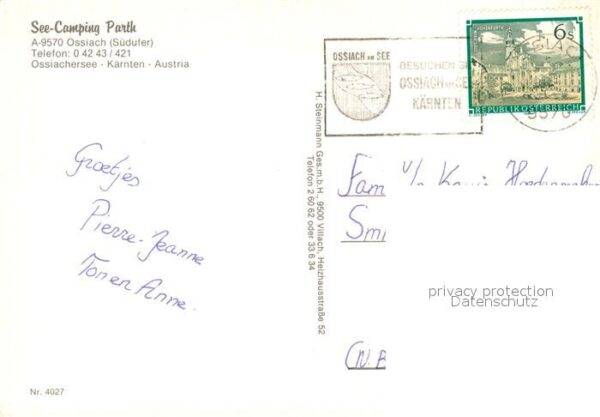 See-Camping Parth
A-9570 Ossiach (Südufer)
Telefon: 0 42 43 / 421
Ossiachersee - Kärnten - Austria
Groetjes
Pierre-Jeanne
Ton en Anne.
Nr. 4027
H. Steinmann Ges.m.b.H., 9500 Villach, Heizhausstraße 52
Telefon 2 60 62 oder 33 6 34
OSSIACH AM SEE
BESUCHEN SIE
OSSIACH AM SEE
KÄRNTEN
6 S
REPUBLIK ÖSTERREICH
9570
Fam
Smi
privacy protection
Datenschutz